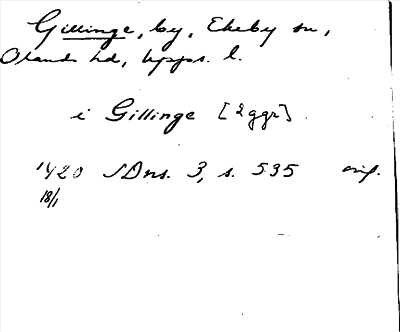 Gillinge, by, Ekeby sn,
Olands hd, Upps. l.
i Gillinge [2 ggr]
1420 SDns. 3, s. 535 orig.
18/1